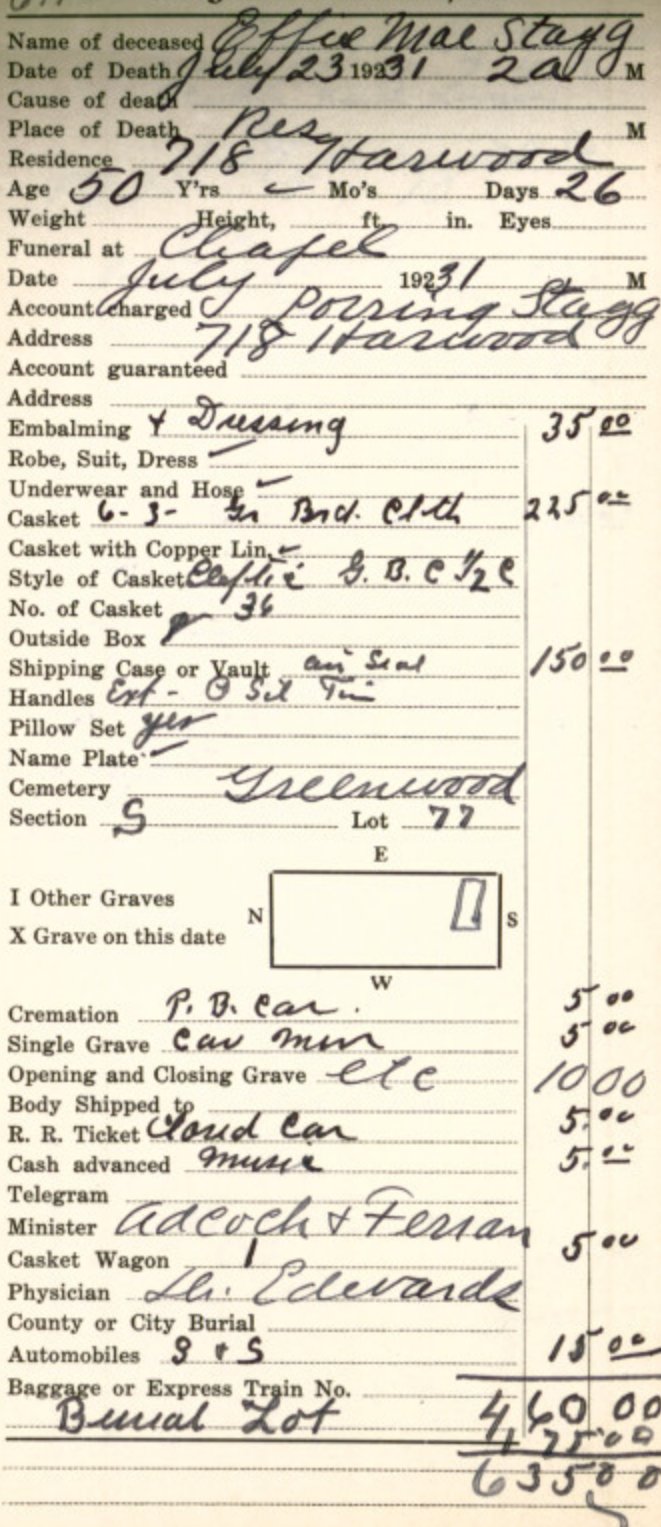 Name of deceased Effie Mae Stagg
Date of Death July 23 192 31 2a M
Cause of death
Place of Death Res M
Residence 718 Harwood
Age 50 Y'rs Mo's Days 26
Weight Height, ft. in. Eyes
Funeral at Chapel
Date July 192 31 M
Account charged Stagg
Address 718 Harwood
Account guaranteed
Address
Embalming + Dressing 35 00
Robe, Suit, Dress
Underwear and Hose
Casket 6-3- Gr Brd. Clth 225 00
Casket with Copper Lin.
Style of Casket G. B. C 1/2 C
No. of Casket 36
Outside Box
Shipping Case or Vault air Seal 150 00
Handles Ext -
Pillow Set yes
Name Plate
Cemetery Greenwood
Section S Lot 77
E
I Other Graves
N S
X Grave on this date
W
Cremation P. B. Car. 5 00
Single Grave 5 00
Opening and Closing Grave etc 10 00
Body Shipped to
R. R. Ticket Closed Car 5.00
Cash advanced music 5.00
Telegram
Minister Adcock & Ferran
Casket Wagon 1 5 00
Physician Dr. Edwards
County or City Burial
Automobiles 3 + S 15 00
Baggage or Express Train No. 460 00
Burial Lot 175 00
635 00